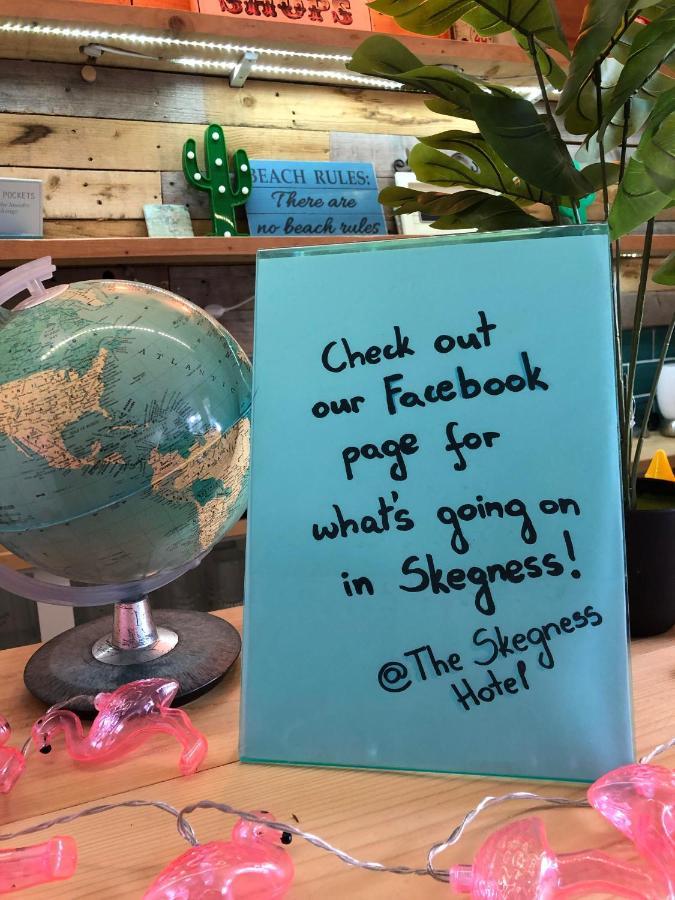 SHOPS
POCKETS
BEACH RULES:
There are
no beach rules
ATLANTIC
Check out
our Facebook
page for
what's going on
in Skegness!
@The Skegness
Hotel